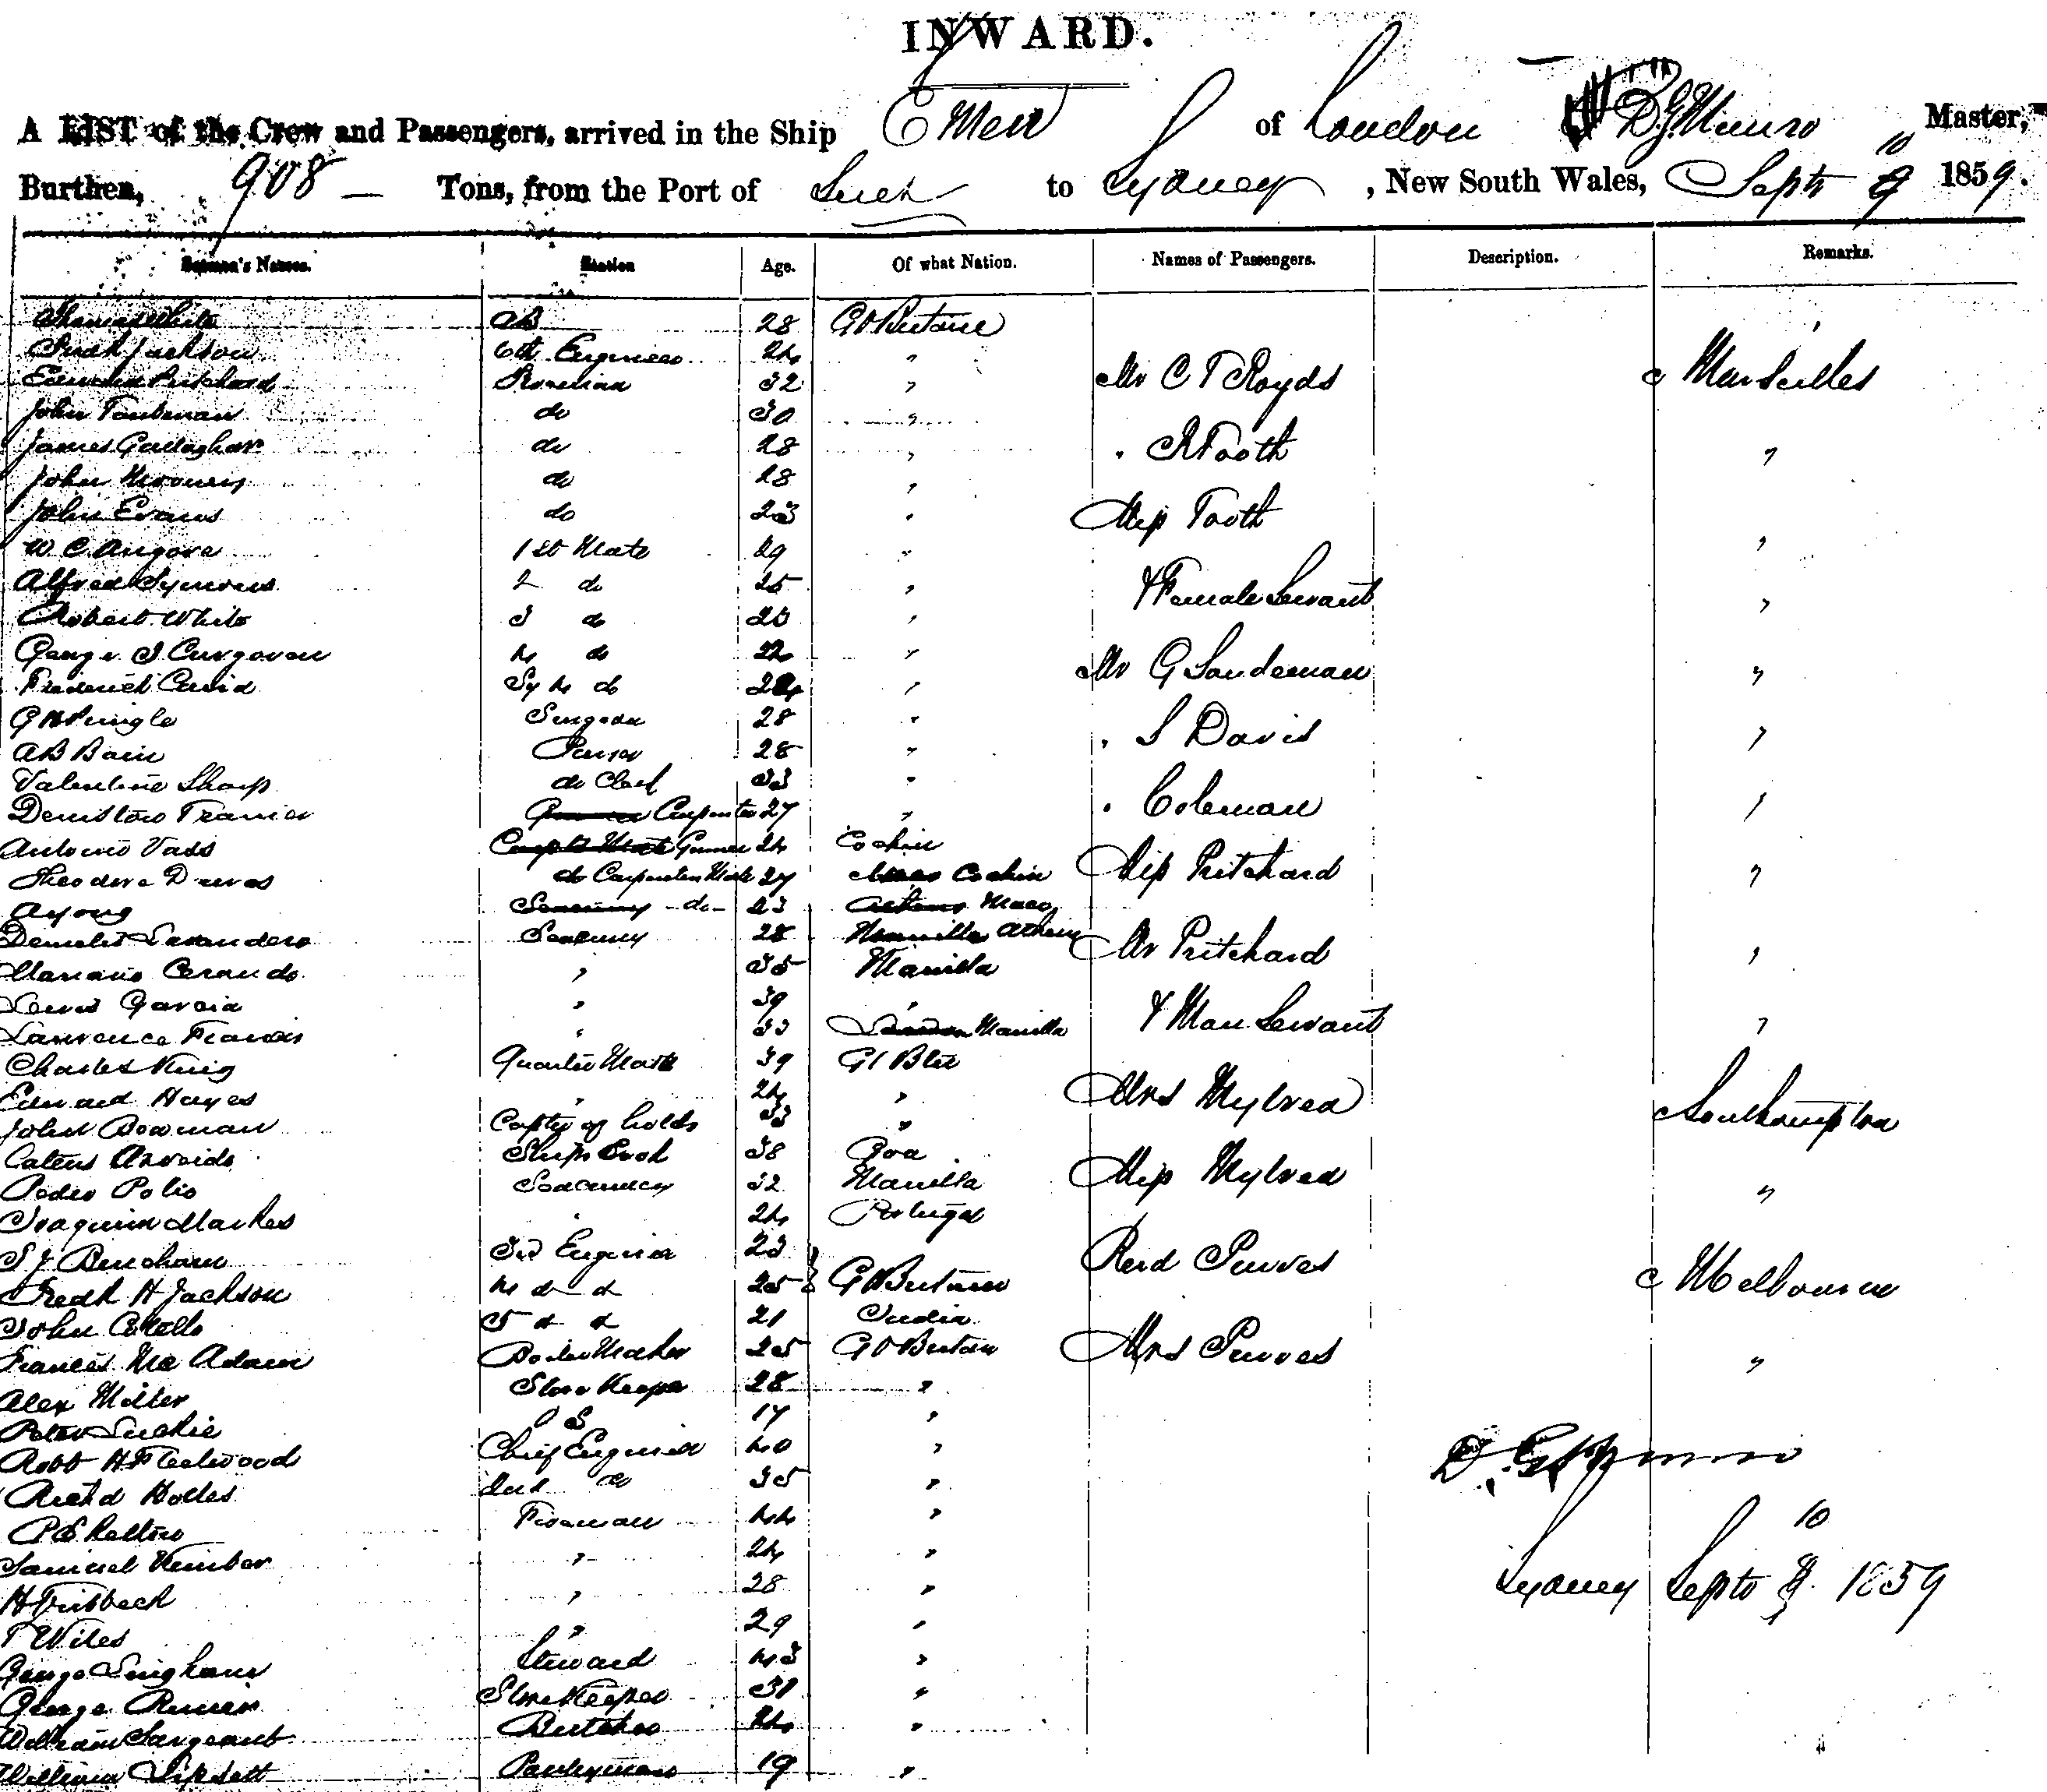 INWARD.
A LIST of the Crew and Passengers, arrived in the Ship Emeu of London D G Munro Master,
Burthen, 908 — Tons, from the Port of Suez to Sydney, New South Wales, Septr 10 1859.
Seamen's Names. Station Age. Of what Nation. Names of Passengers. Description. Remarks.
Thomas White AB 28 Gt Britain
Jackson 6th Engineer 24 "
Edward Pritchard Fireman 32 " Mr C T Royds Marseilles
John Toubman do 30 "
James Gallagher do 28 " " R Tooth "
John Mooney do 28 "
John Evans do 23 " Miss Tooth "
W C Angove 1st Mate 29 "
Alfred Symons 2 do 25 " & Female Servant "
Robert White 3 do 23 "
George J Curgoven 4 do 22 " Mr G Sandeman "
Frederick David Sy 4 do "
G H Pringle Surgeon 28 " " S Davis "
A B Bain Purser 28 "
Valentine Sharp do Clerk 33 " " Coleman "
Carpenter 27 "
Antonio Vass Gunner 24 Cochin Miss Pritchard "
Theodore Carpenters Mate 27 Cochin
Ayong do 23 Macao
Seacunny 28 Athens Mr Pritchard "
Mariano " 35 Manilla
Lewis Garcia " 39 " & Man Servant "
Lawrence Francis " 33 Manilla
Charles King Quarter Master 39 Gt Btn
Edward Hayes " 24 " Mrs Mylrea Southampton
John Bowman Captn of holds 33 "
Ships Cook 38 Goa Miss Mylrea "
Pedro Polio Seacunny 32 Manilla
Joaquim Markes " 24 Portugal
S J Bencham 3rd Engineer 23 Revd Purves Melbourne
Fredk H Jackson 4 do do 25 Gt Britain
John 5 do do 21 India
Francis Mc Adam Boiler Maker 25 Gt Britain Mrs Purves "
Alex Miller Store Keeper 28 "
Peter Luckie O S 17 "
Robt H Fleetwood Chief Engineer 40 " D. G. Munro
Richd Holles 2nd do 35 "
P Skelton Fireman 44 " 10
Samuel Kimber " 24 " Sydney Septr 1859
H Trisbeck " 28 "
T Wiles " 29 "
George Singham Steward 43 "
George Storekeeper 31 "
William Sargeant Butcher 24 "
William Lipsett Pantryman 19 "